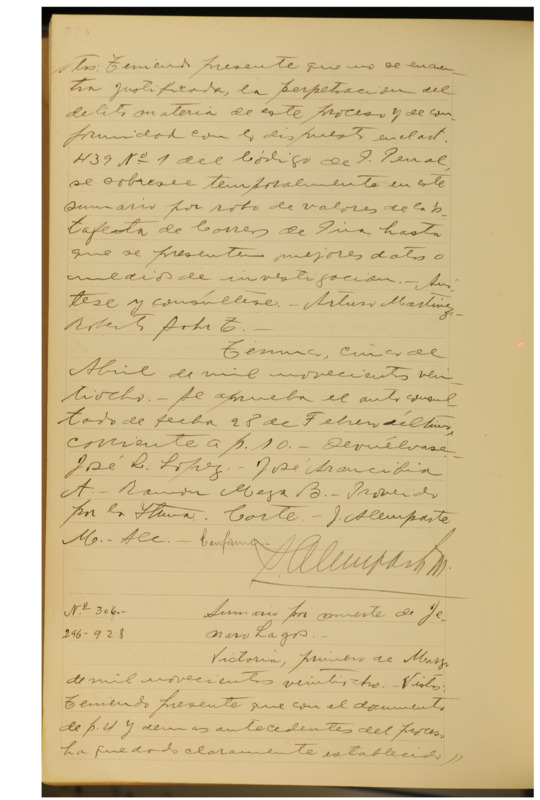 tos: Teniendo presente que no se encuen-
tra justificada la perpetracion del
delito materia de este proceso y de con-
formidad con lo dispuesto en el art.
439 Nº 1 del Código de P. Penal,
se sobresee temporalmente en este
sumario por robo de valores de la Es-
tafeta de Correos de Pua hasta
que se presenten mejores datos o
medios de investigacion. - Anó-
tese y consúltese. - Arturo Martinez-
Roberto Bohr E. -
Temuco, cinco de
Abril de mil novecientos vein-
tiocho. - Se aprueba el auto consul-
tado de fecha 28 de Febrero último,
corriente a f. 10. - Devuélvase.-
José L. Lopez. - José Arancibia
A. - Ramon Meza B. - Proveido
por la Iltma. Corte. - J. Alemparte
M. - Sec. - Conforme.-
J. Alemparte M.
Nº 306.-
296-928
Sumario por muerte de Je-
naro Lagos. -
Victoria, primero de Marzo
de mil novecientos veintiocho. - Vistos:
Teniendo presente que con el documento
de f. 4 y demas antecedentes del proceso
ha quedado claramente establecido